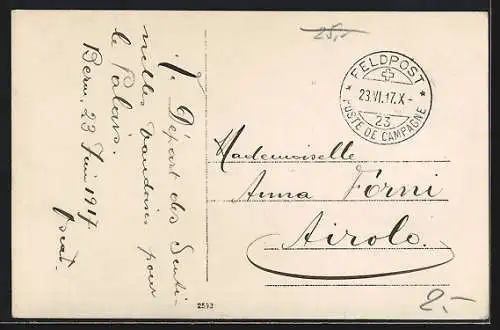 Départ des Senti-
nelles Vaudoises pour
le Palais.
Bern, 23 Juin 1917
25,-
FELDPOST
23.VI.17.X-
23
POSTE DE CAMPAGNE
Mademoiselle
Anna Forni
Airolo.
2.-